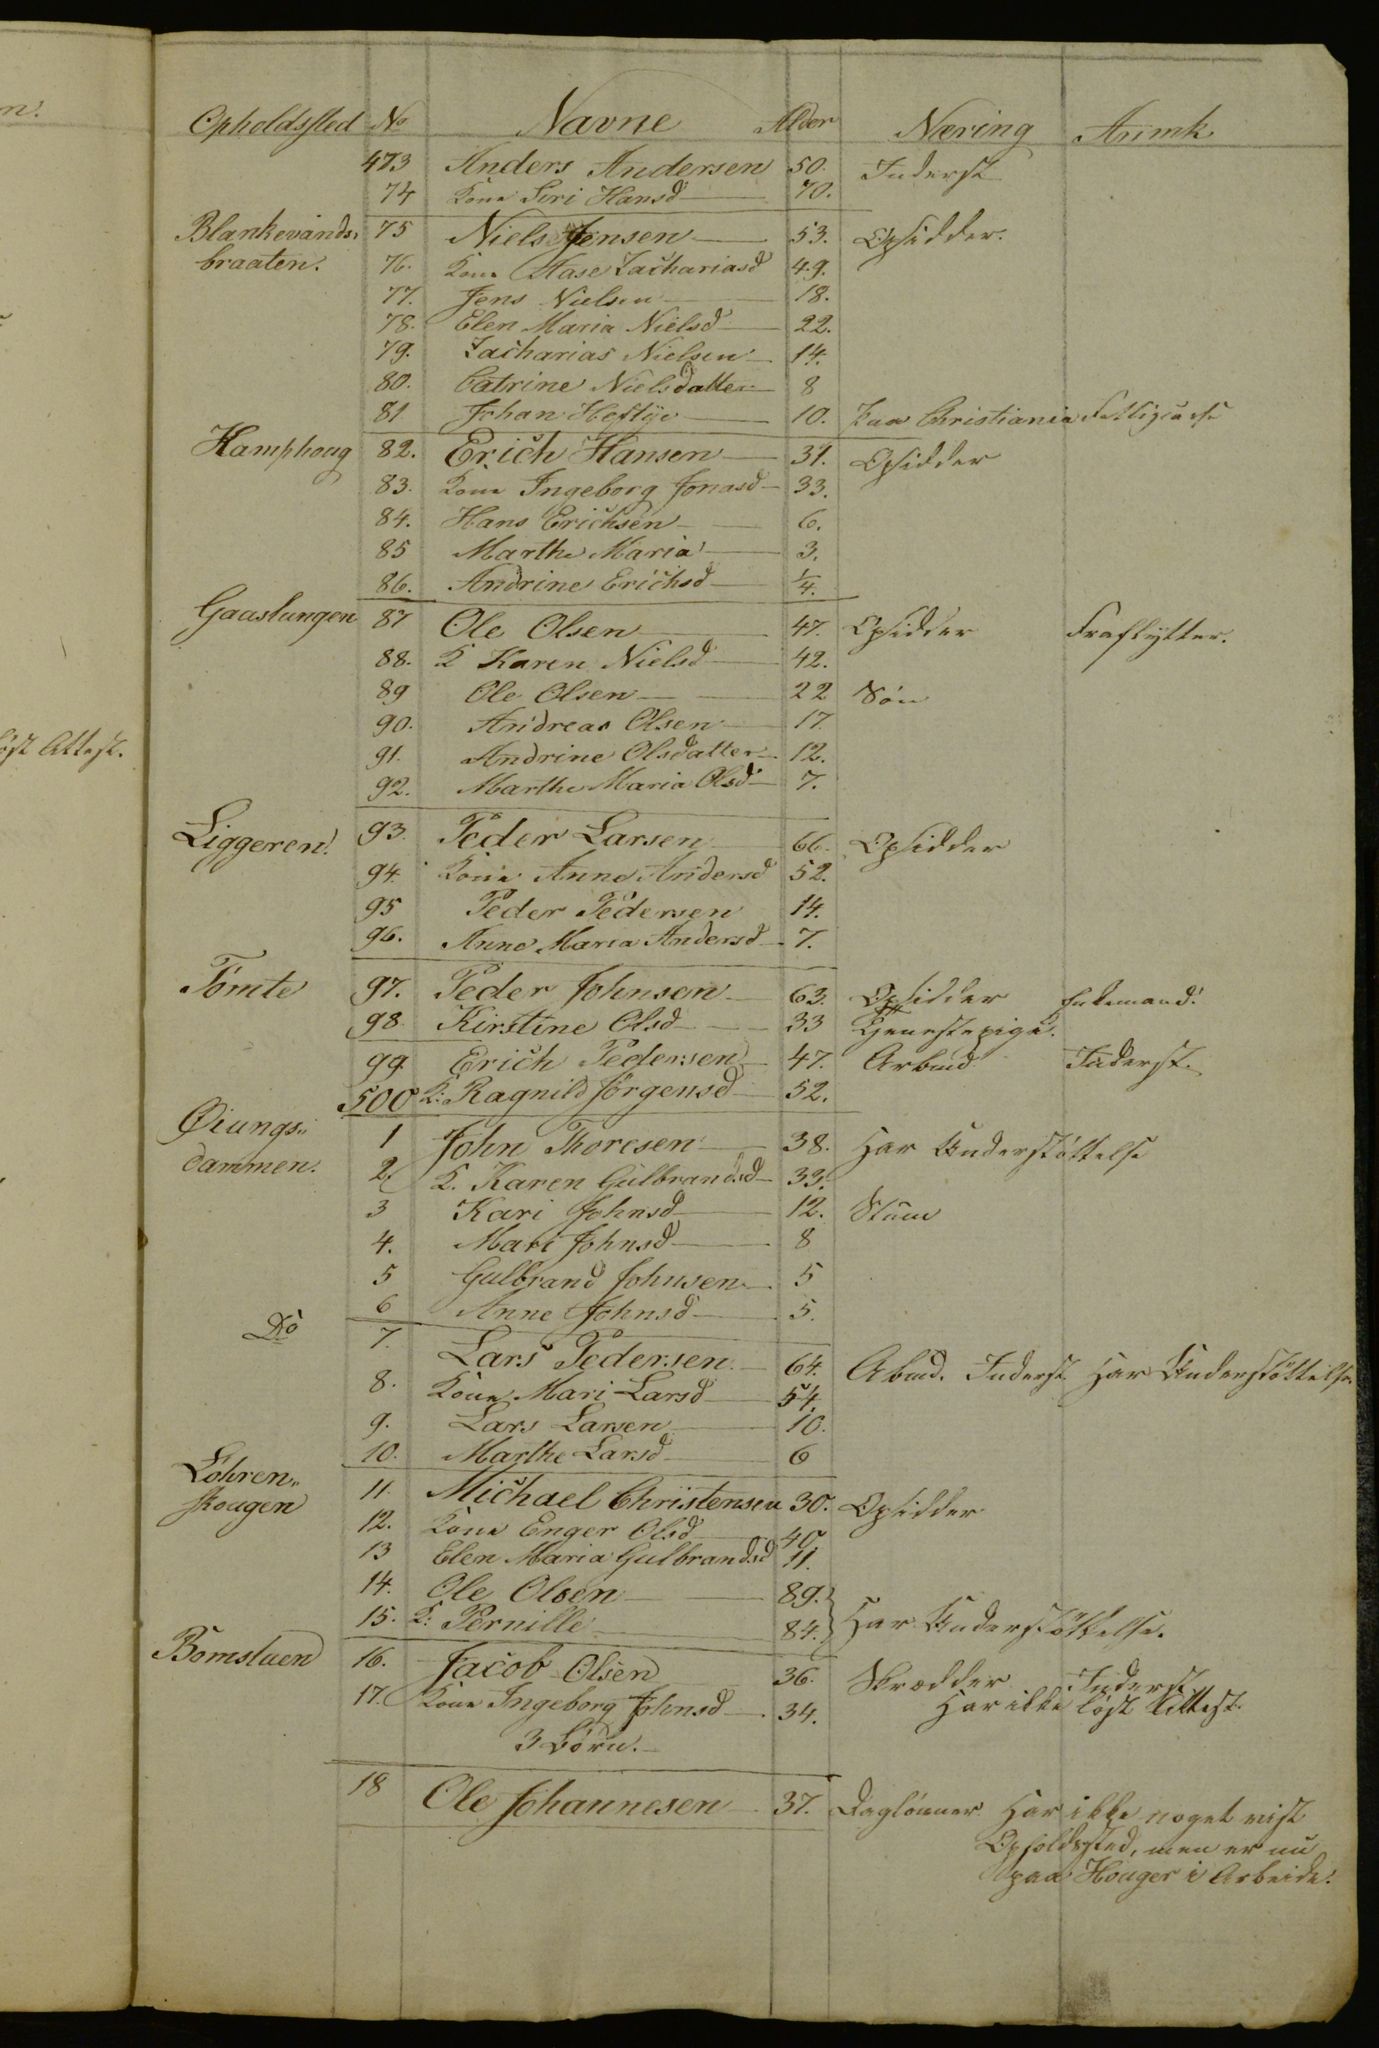 Opholdssted No Navne Alder Næring Anmk
473 Anders Andersen 50. Inderst
74 Kone Siri Hansd 70.
Blankevands- 75 Niels Jensen 53. Opsidder.
braaten. 76. Kone Aase Zachariasd 49.
77. Jens Nielsen 18.
78. Elen Maria Nielsd 22.
79. Zacharias Nielsen 14.
80. Catrine Nielsdatter 8
81 Johan Heftye 10. paa Christiania
Kamphoug 82. Erich Hansen 31. Opsidder
83. Kone Ingeborg Jonasd 33.
84. Hans Erichsen 6.
85 Marthe Maria 3.
86. Andrine Erichsd 1/4.
Gaaslungen 87 Ole Olsen 47. Opsidder Fraflytter.
88. K Karen Nielsd 42.
89 Ole Olsen 22 Søn
90. Andreas Olsen 17.
91. Andrine Olsdatter 12.
øst Attest.
92. Marthe Maria Olsd 7.
Liggeren. 93. Peder Larsen 66. Opsidder
94. Kone Anne Andersd 52.
95 Peder Pedersen 14.
96. Anne Maria Andersd 7.
Tømte 97. Peder Johnsen 63. Opsidder Enkemand.
98. Kirstine Olsd 33 Tjenestepige.
99. Erich Pedersen 47. Arbmd Inderst.
500 K: Ragnild Jørgensd 52.
Øiungs- 1 John Thoresen 38. Har Understøttelse
dammen. 2 K. Karen Gulbrandsd 33.
3 Kari Johnsd 12. Stum
4. Mari Johnsd 8
5 Gulbrand Johnsen 5
6 Anne Johnsd 5.
Do 7. Lars Pedersen 64. Abmd. Inderst Har Understøttelse.
8. Kone Mari Larsd 54.
9. Lars Larsen 10.
10. Marthe Larsd 6
Løhren- 11. Michael Christensen 30. Opsidder
skougen
12. Kone Enger Olsd 40
13 Elen Maria Gulbrandsd 11.
14. Ole Olsen 89.
15. K: Pernille 84. Har Understøttelse.
Bomstuen 16. Jacob Olsen 36. Skrædder Inderst
17. Kone Ingeborg Johnsd 34. Har ikke løst Attest.
3 Børn.
18 Ole Johannesen 37. Daglønner Har ikke noget vist
Opholdssted, men er nu
paa Houger i Arbeide.